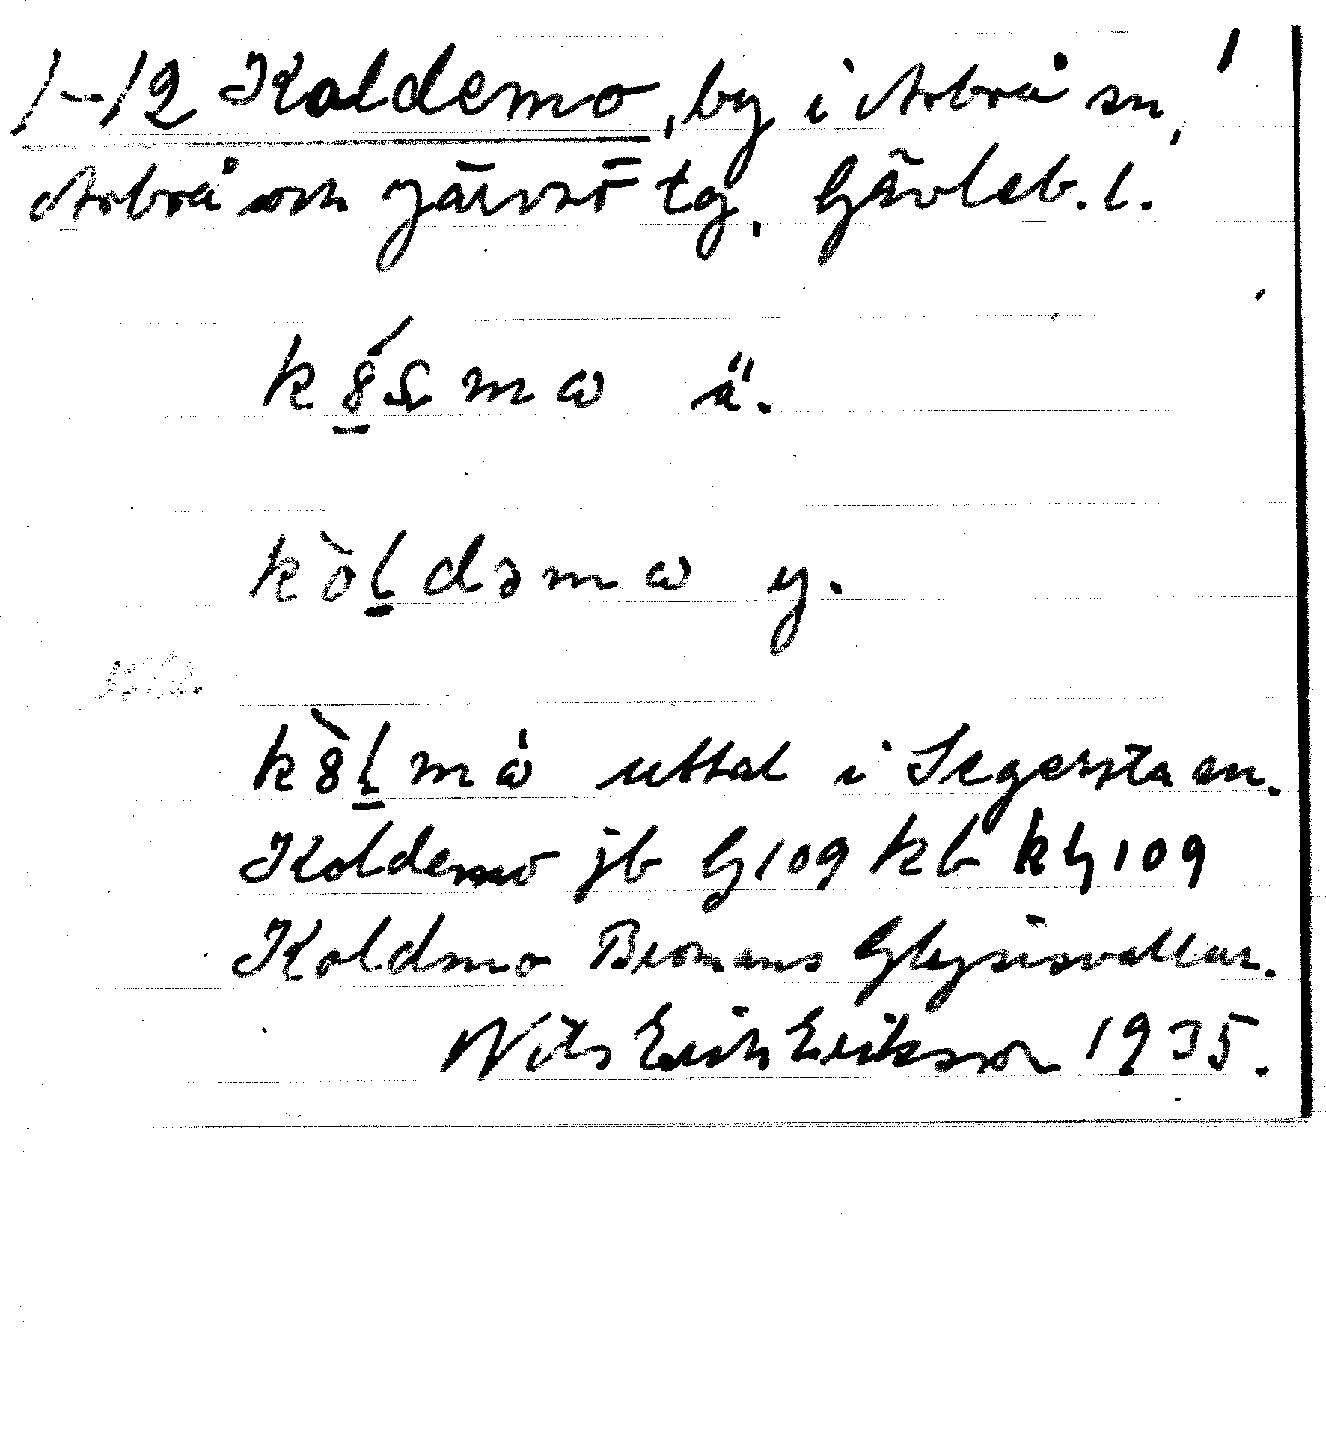 1-12 Koldemo, by i Arbrå sn, 1
Arbrå och Järvsö tg. Gävleb. l.
ä.
kòldəmω y.
uttal i Segersta sn.
Koldemo jb G109 kb kG109
Koldmo Bromans Glysisvallar.
Nils Erik Eriksson 1935.